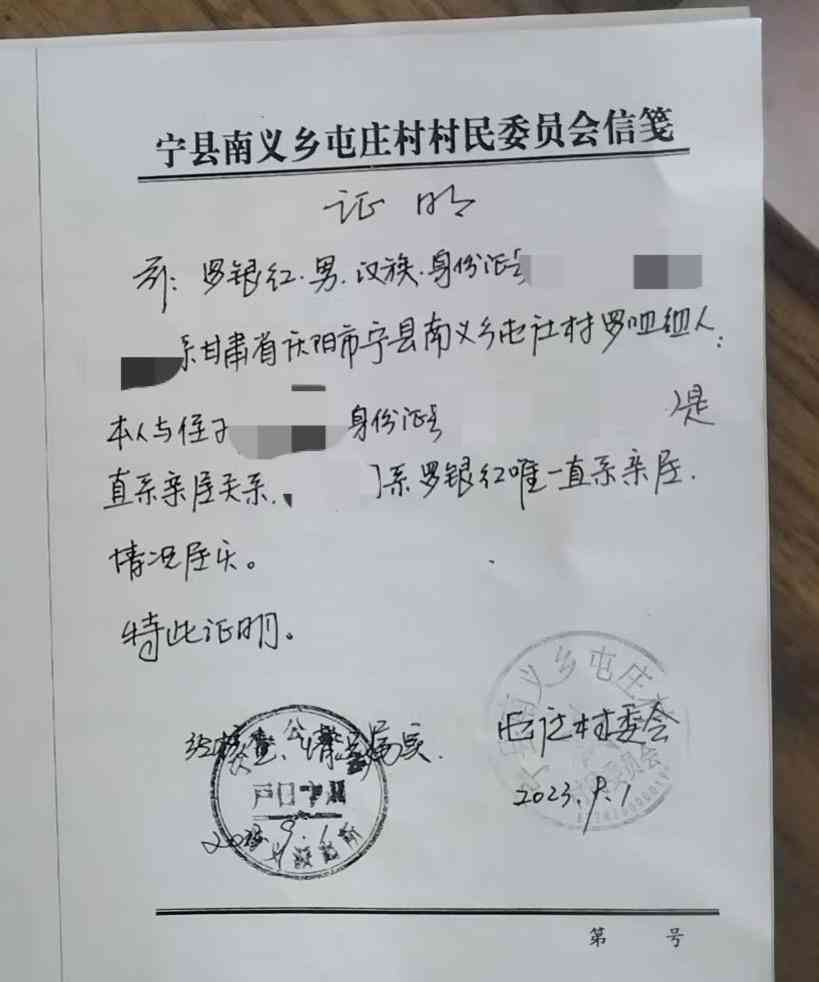 宁县南义乡屯庄村村民委员会信笺
证 明
罗银红.男.汉族.身份证号
系甘肃省庆阳市宁县南义乡屯庄村罗咀组人:
本人与侄子 身份证号 是
直系亲属关系. 系罗银红唯一直系亲属.
情况属实。
特此证明。
经核查、情况属实.
屯庄村委会
2023.9.1
2023.9.1
南义乡屯庄村
委员会
户口专用
第 号